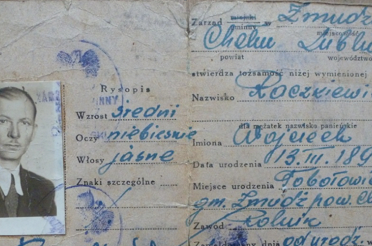 Rysopis
Wzrost średni
Oczy niebieskie
Włosy jasne
Znaki szczególne
Zarząd gminny Żmudź
Chełm Lubl
powiat województwo
stwierdza tożsamość niżej wymienionej
Nazwisko
dla mężatek nazwisko panieńskie
Imiona Wojciech
Data urodzenia 13. III. 189
Miejsce urodzenia
gm. Żmudź pow. Ch
Zawód Rolnik